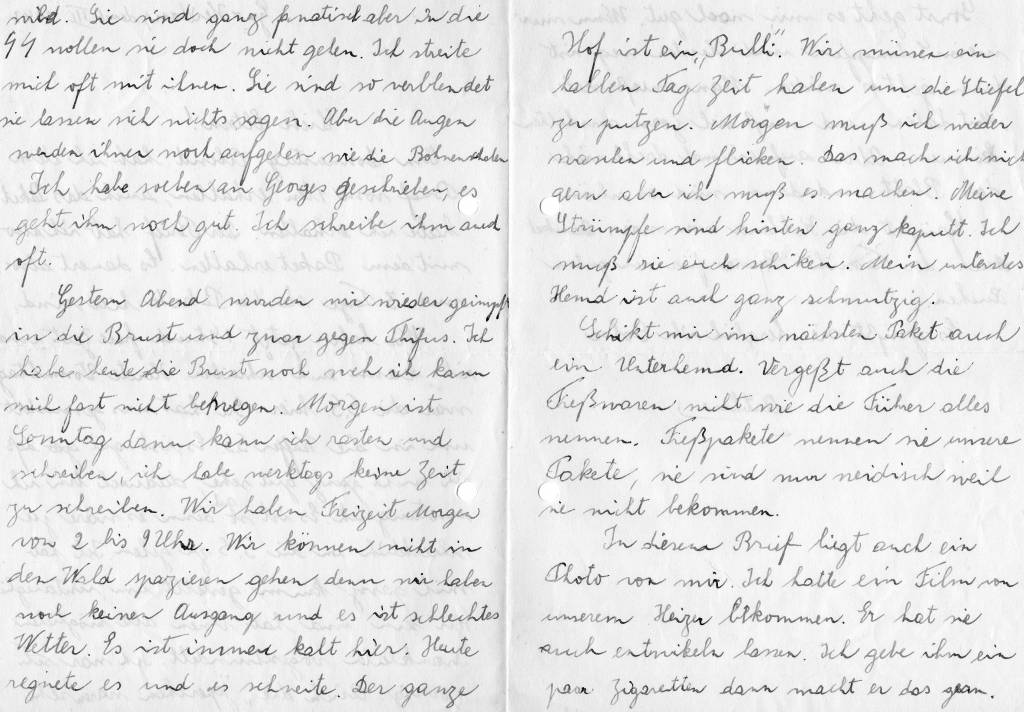 wild. Sie sind ganz fanatisch aber in die
SS wollen sie doch nicht gehen. Ich streite
mich oft mit ihnen. Sie sind so verblendet
sie lassen sich nichts sagen. Aber die Augen
werden ihnen noch aufgehen wie die
Ich habe soeben an Georges geschrieben, es
geht ihm noch gut. Ich schreibe ihm auch
oft.
Gestern Abend wurden wir wieder geimpft
in die Brust und zwar gegen Thifus. Ich
habe heute die Brust noch weh ich kann
mich fast nicht bewegen. Morgen ist
Sonntag dann kann ich rasten und
schreiben ich habe werktags keine Zeit
zu schreiben. Wir haben Freizeit Morgen
von 2 bis 9 Uhr. Wir können nicht in
den Wald spazieren gehen denn wir haben
noch keinen Ausgang und es ist schlechtes
Wetter. Es ist immer kalt hier. Heute
regnete es und es schneite. Der ganze
Hof ist ein „Bulli“. Wir müssen ein
halben Tag Zeit haben um die Stiefel
zu putzen. Morgen muß ich wieder
waschen und flicken. Das mach ich nicht
gern aber ich muß es machen. Meine
Strümpfe sind hinten ganz kaputt. Ich
muß sie euch schiken. Mein unterstes
Hemd ist auch ganz schmutzig.
Schikt mir im nächsten Paket auch
ein Unterhemd. Vergeßt auch die
Freßwaren nicht wie die Führer alles
nennen. Freßpakete nennen sie unsere
Pakete, sie sind nur neidisch weil
sie nicht bekommen.
In diesem Brief liegt auch ein
Photo von mir. Ich hatte ein Film von
unserem Heizer bekommen. Er hat sie
auch entwikeln lassen. Ich gebe ihm ein
paar Zigaretten dann macht er das gern.